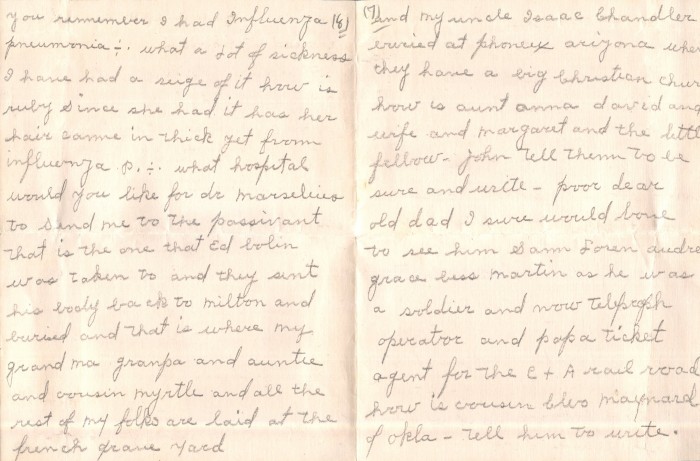 you remember I had Influenza (6)
pneumonia ÷. what a lot of sickness
I have had a seige of it how is
ruby since she had it has her
hair came in thick yet from
influenza P. ÷. what hospital
would you like for dr
to send me to the passivant
that is the one that Ed bolin
was taken to and they sent
his body back to milton and
buried and that is where my
grand ma granpa and auntie
and cousin myrtle and all the
rest of my folks are laid at the
french grave yard
(7) and my uncle Isaac Chandler
buried at phonex arizona wher
they have a big Christian chur
how is aunt anna david and
wife and margaret and the littl
fellow - John tell them to be
sure and write - poor dear
old dad I sure would love
to see him Sam Loren audre
grace bess martin as he was
a soldier and now
operator and papa ticket
agent for the C + A rail road
how is cousin maynard
of okla - tell him to write.